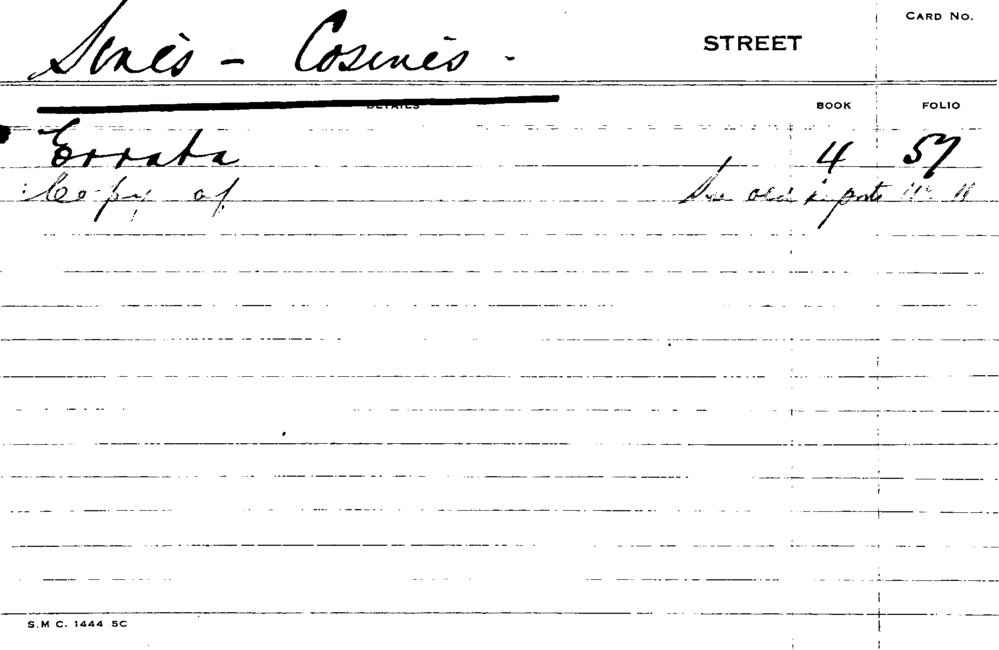 CARD NO.
Sines - Cosines - STREET
DETAILS BOOK FOLIO
Errata 4 57
Copy of See old reports
S.M C. 1444 5C